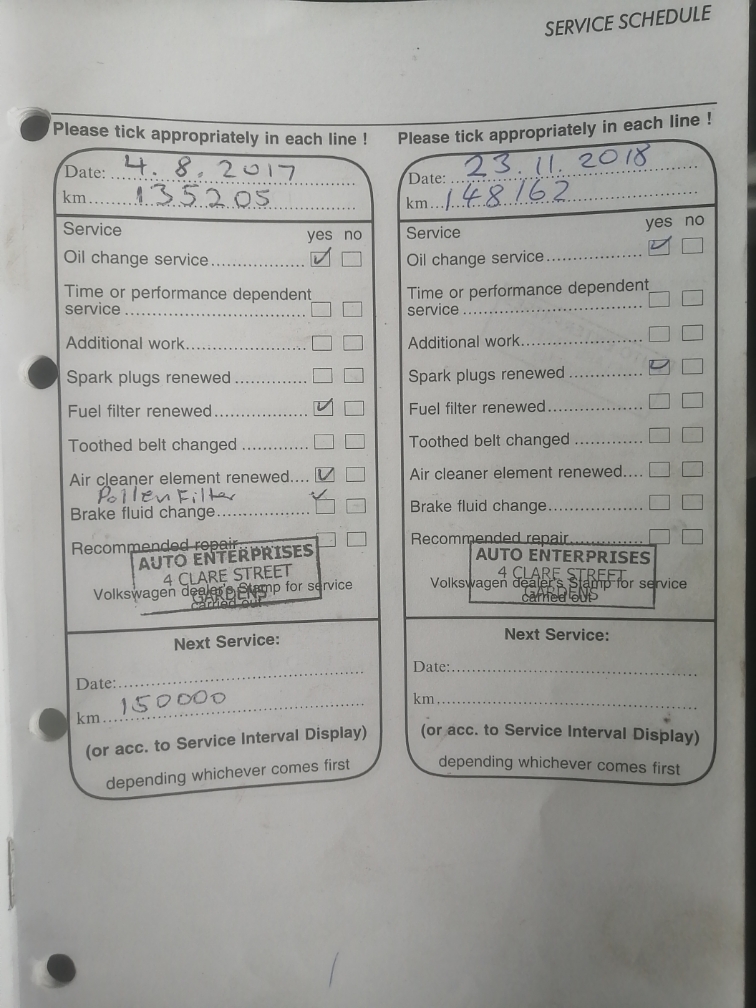 SERVICE SCHEDULE
Please tick appropriately in each line !
Date: 4.8.2017
km 135205
Service yes no
Oil change service
Time or performance dependent
service
Additional work
Spark plugs renewed
Fuel filter renewed
Toothed belt changed
Air cleaner element renewed
Pollen Filter
Brake fluid change
Recommended repair
AUTO ENTERPRISES
4 CLARE STREET
GARDENS
Volkswagen dealer's Stamp for service
carried out
Next Service:
Date:
km 150000
(or acc. to Service Interval Display)
depending whichever comes first
Please tick appropriately in each line !
Date: 23.11.2018
km 148162
Service yes no
Oil change service
Time or performance dependent
service
Additional work
Spark plugs renewed
Fuel filter renewed
Toothed belt changed
Air cleaner element renewed
Brake fluid change
Recommended repair
AUTO ENTERPRISES
4 CLARE STREET
GARDENS
Volkswagen dealer's Stamp for service
carried out
Next Service:
Date:
km
(or acc. to Service Interval Display)
depending whichever comes first